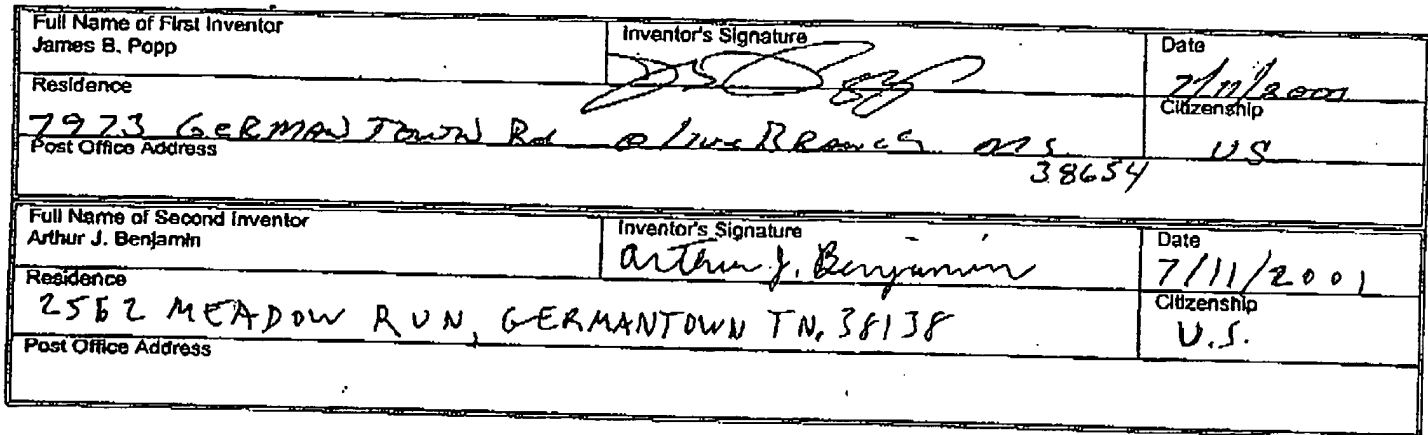 Full Name of First Inventor
James B. Popp
Inventor's Signature
Date
7/11/2001
Residence
7973 GERMANTOWN Rd Olive BRanch MS.
38654
Citizenship
US
Post Office Address
Full Name of Second Inventor
Arthur J. Benjamin
Inventor's Signature
Arthur J. Benjamin
Date
7/11/2001
Residence
2562 MEADOW RUN, GERMANTOWN TN. 38138
Citizenship
U.S.
Post Office Address